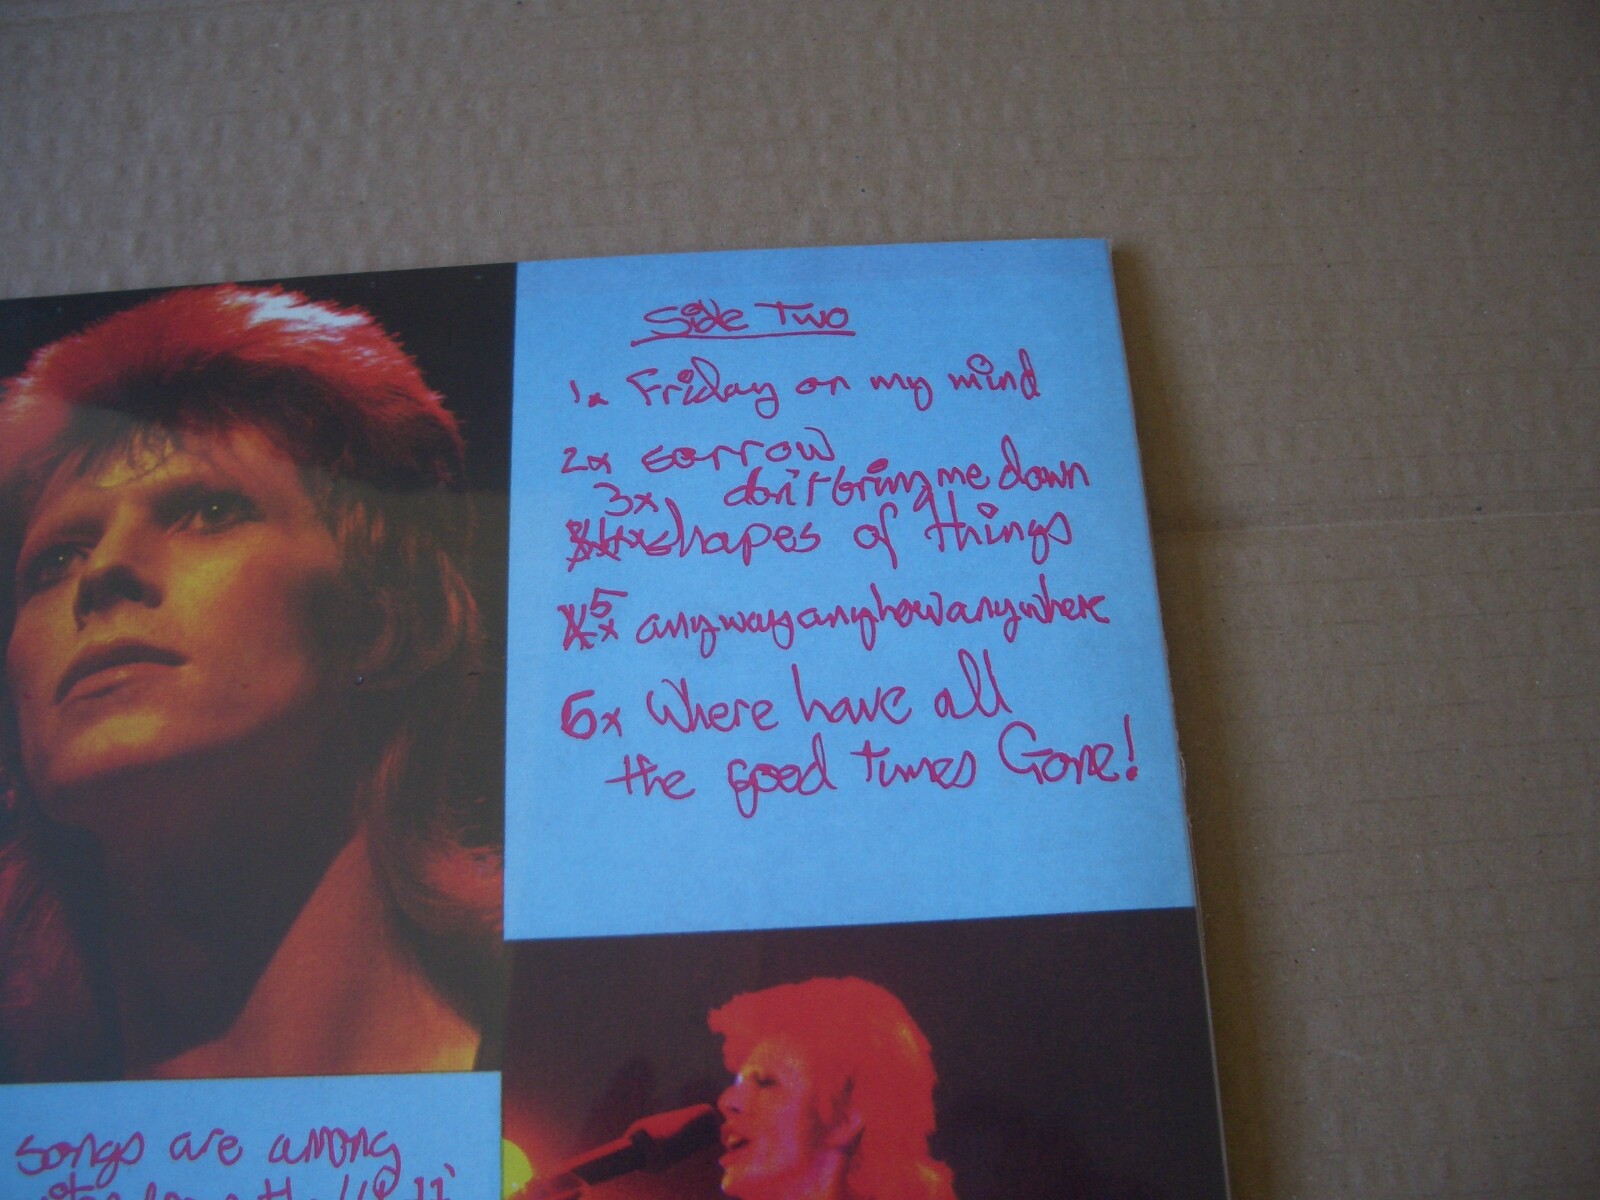 Side Two
1x Friday on my mind
2x sorrow
3x don't bring me down
4x shapes of things
5x anywayanyhowanywhere
6x Where have all
the good times Gone!
songs are among